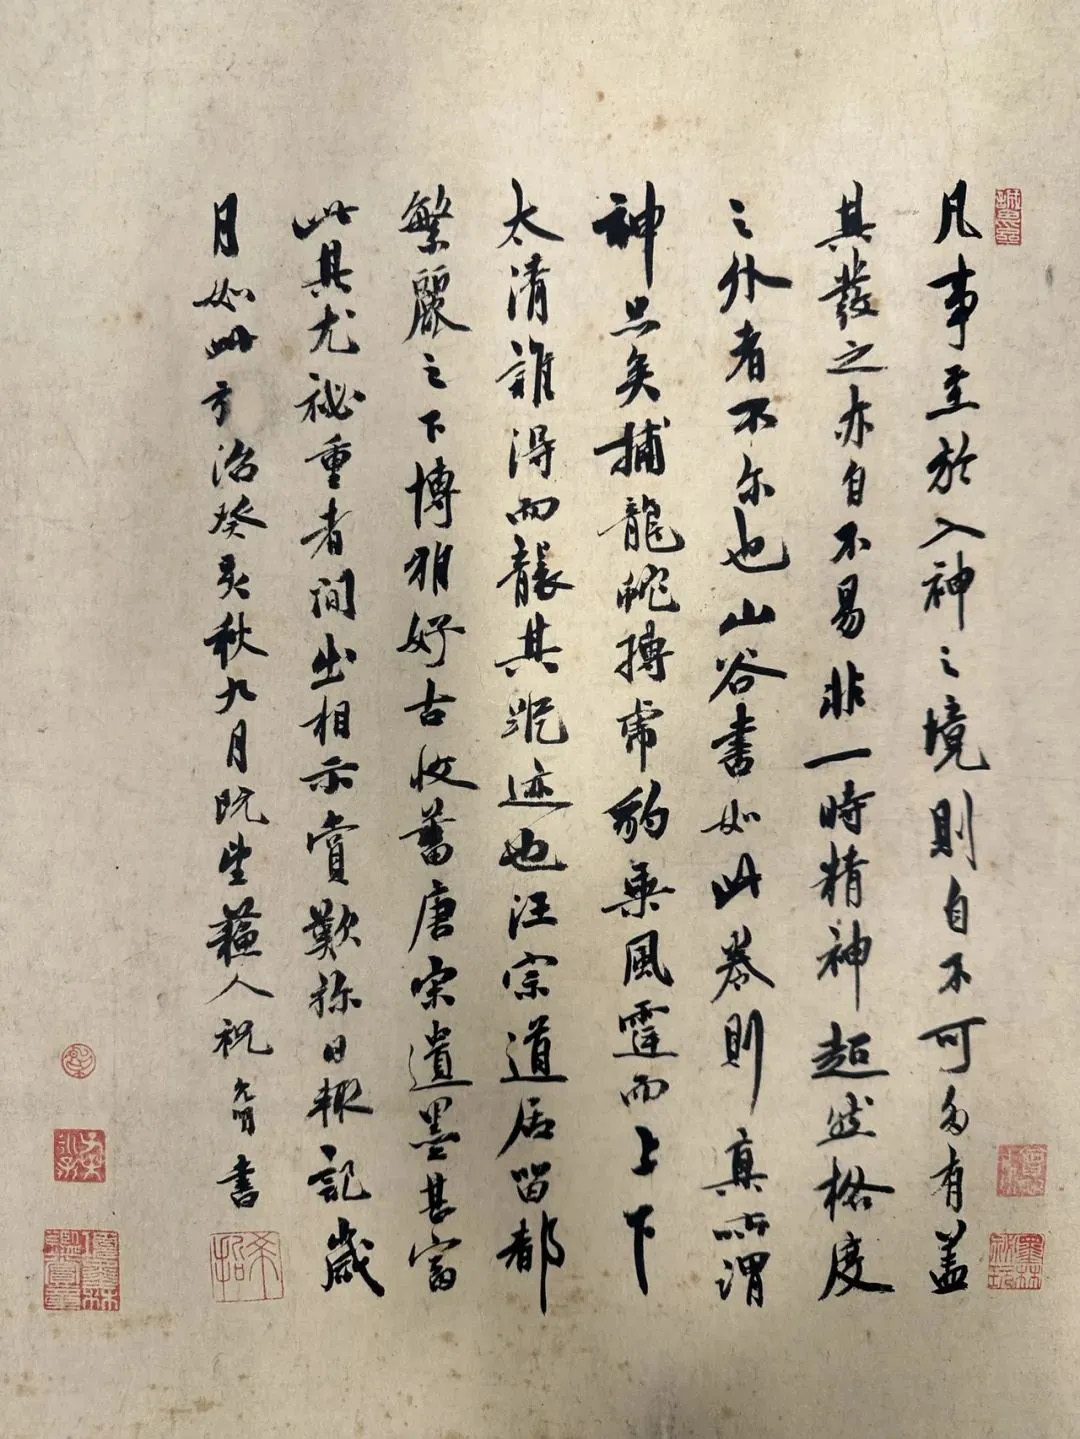 凡事至於入神之境則自不可多有蓋
其發之亦自不易非一時精神超然格度
之外者不尔也山谷書如此卷則真所謂
神品矣捕龍蛇搏虎豹乘風霆而上下
太清誰得而襲其蹤迹也汪宗道居留都
繁麗之下博雅好古收蓄唐宋遺墨甚富
此其尤祕重者間出相示賞歎弥日輙記歲
月如此弘治癸亥秋九月既望蘇人祝允明書
希哲